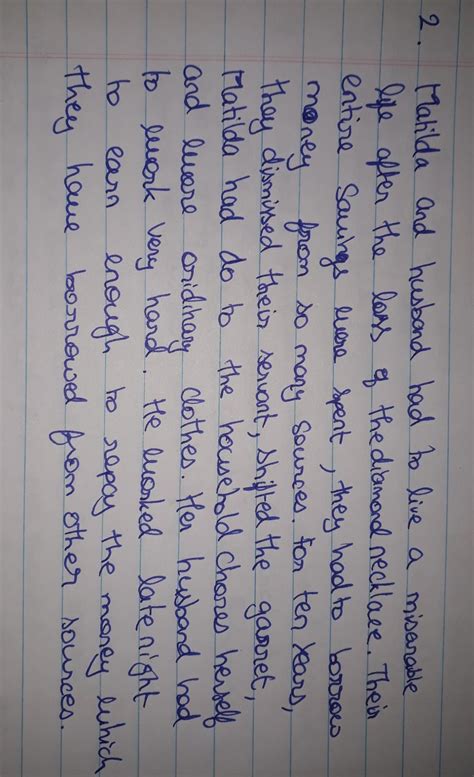 2. Matilda and husband had to live a miserable
life after the loss of the diamond necklace. Their
entire savings were spent, they had to borrow
money from so many sources. For ten years,
they dismissed their servant, shifted the garret,
Matilda had do to the household chores herself
and wore oridinary clothes. Her husband had
to work very hard. He worked late night
to earn enough to repay the money which
they have borrowed from other sources.